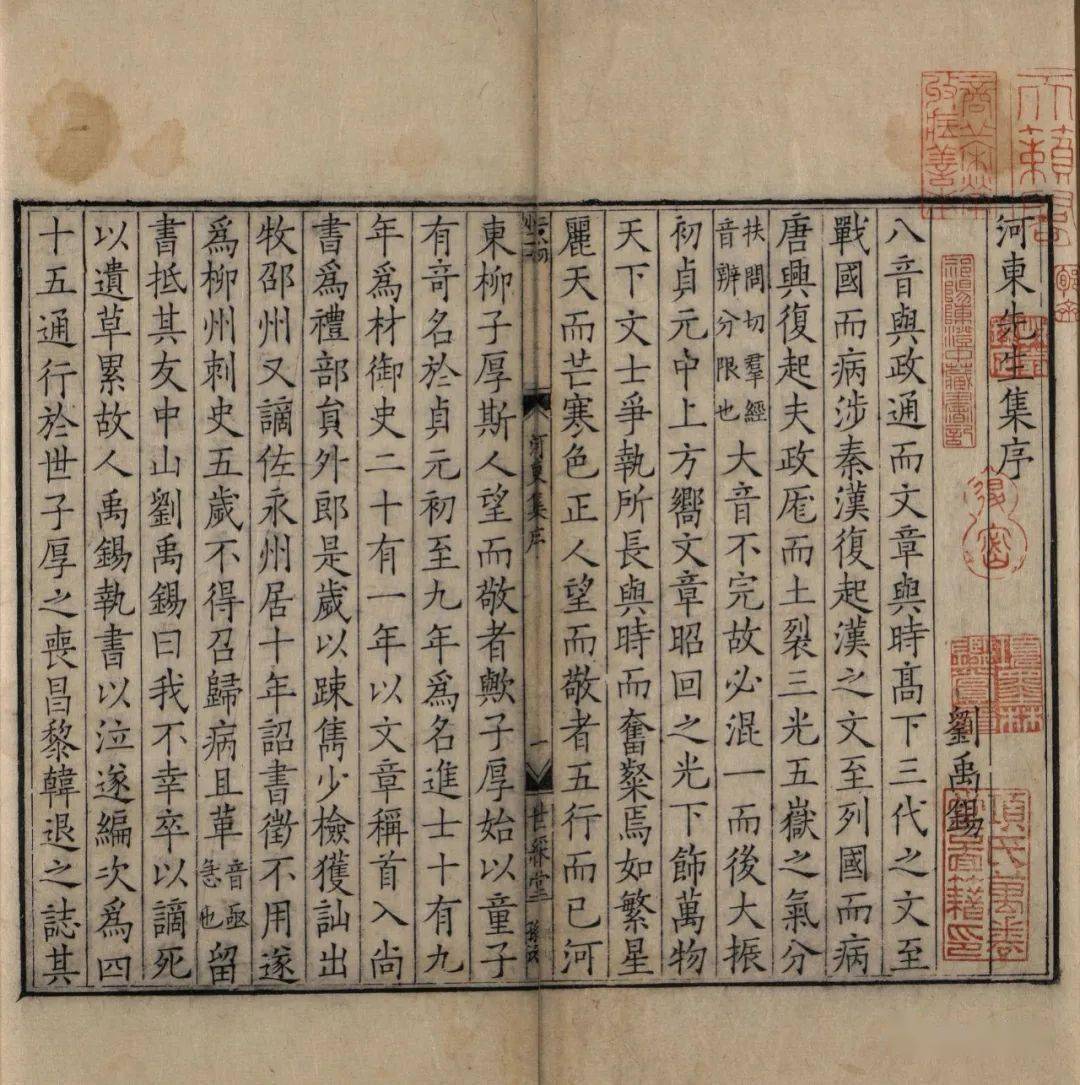 河東先生集序
劉禹錫
八音與政通而文章與時髙下三代之文至
戰國而病涉秦漢復起漢之文至列國而病
唐興復起夫政厖而土裂三光五嶽之氣分
扶問切羣經
音辨分限也
大音不完故必混一而後大振
初貞元中上方嚮文章昭回之光下飾萬物
天下文士爭執所長與時而奮粲焉如繁星
麗天而芒寒色正人望而敬者五行而已河
河東集序
一
世綵堂
東柳子厚斯人望而敬者歟子厚始以童子
有竒名於貞元初至九年爲名進士十有九
年爲材御史二十有一年以文章稱首入尚
書爲禮部貟外郎是歲以踈雋少檢獲訕出
牧邵州又謫佐永州居十年詔書徵不用遂
爲柳州刺史五歲不得召歸病且革
音亟
急也
留
書抵其友中山劉禹錫曰我不幸卒以謫死
以遺草累故人禹錫執書以泣遂編次爲四
十五通行於世子厚之喪昌黎韓退之誌其
天籟閣
項氏萬卷
祁陽陳澄中藏書記